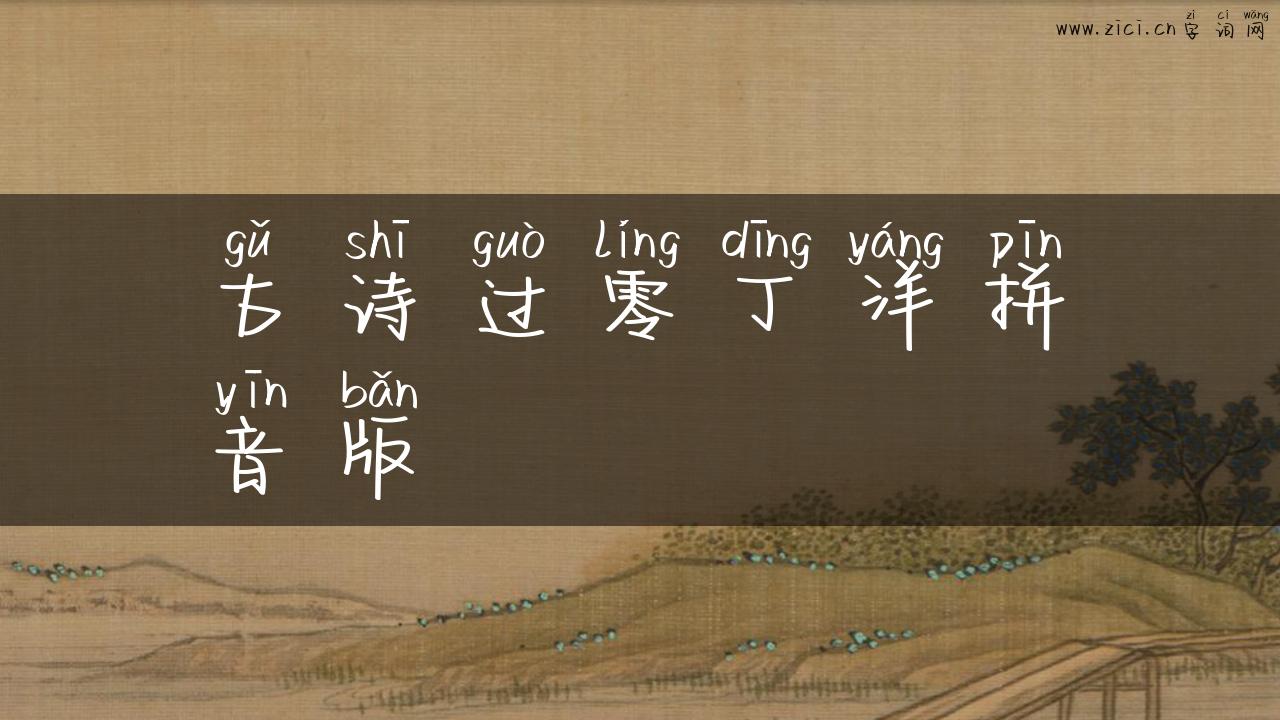 zì cí wǎng
www.zici.cn字词网
gǔ shī guò líng dīng yáng pīn
古诗过零丁洋拼
yīn bǎn
音版